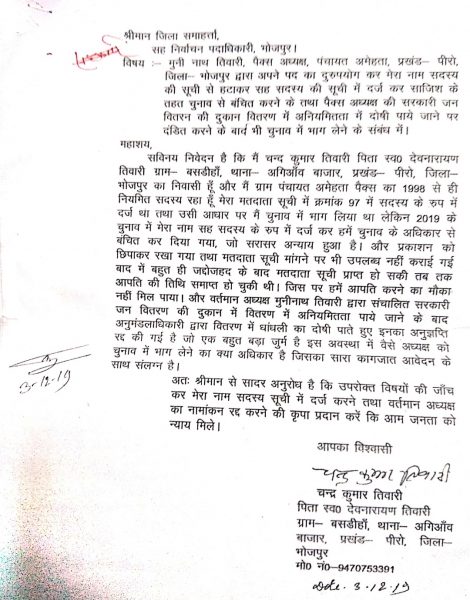 श्रीमान जिला समाहर्त्ता
सह निर्वाचन पदाधिकारी, भोजपुर।
विषय :- मुनी नाथ तिवारी, पैक्स अध्यक्ष, पंचायत अमेहता, प्रखंड- पीरो,
जिला- भोजपुर द्वारा अपने पद का दुरुपयोग कर मेरा नाम सदस्य
की सूची से हटाकर सह सदस्य की सूची में दर्ज कर साजिश के
तहत चुनाव से बंचित करने के तथा पैक्स अध्यक्ष की सरकारी जन
वितरन की दुकान वितरण में अनियमितता में दोषी पाये जाने पर
दंडित करने के बाद भी चुनाव में भाग लेने के संबंध में।
महाशय,
सविनय निवेदन है कि मैं चन्द कुमार तिवारी पिता स्व0 देवनारायण
तिवारी ग्राम- बसडीहाँ, थाना- अगिआँव बाजार, प्रखंड- पीरो, जिला-
भोजपुर का निवासी हूँ और मैं ग्राम पंचायत अमेहता पैक्स का 1998 से ही
नियमित सदस्य रहा हूँ, मेरा मतदाता सूची में क्रमांक 97 में सदस्य के रुप में
दर्ज था तथा उसी आधार पर मैं चुनाव में भाग लिया था लेकिन 2019 के
चुनाव में मेरा नाम सह सदस्य के रुप में दर्ज कर हमें चुनाव के अधिकार से
बंचित कर दिया गया, जो सरासर अन्याय हुआ है। और प्रकाशन को
छिपाकर रखा गया तथा मतदाता सूची मांगने पर भी उपलब्ध नहीं कराई गई
बाद में बहुत ही जद्दोजहद के बाद मतदाता सूची प्राप्त हो सकी तब तक
आपति की तिथि समाप्त हो चुकी थी। जिस पर हमें आपति करने का मौका
नहीं मिल पाया। और वर्तमान अध्यक्ष मुनीनाथ तिवारी द्वारा संचालित सरकारी
जन वितरण की दुकान में वितरण में अनियमितता पाये जाने के बाद
अनुमंडलाधिकारी द्वारा वितरण में धांधली का दोषी पाते हुए इनका अनुज्ञप्ति
रद्द की गई है जो एक बहुत बड़ा जुर्म है इस अवस्था में वैसे अध्यक्ष को
चुनाव में भाग लेने का क्या अधिकार है जिसका सारा कागजात आवेदन के
साथ संलग्न है।
3-12-19
अतः श्रीमान से सादर अनुरोध है कि उपरोक्त विषयों की जाँच
कर मेरा नाम सदस्य सूची में दर्ज करने तथा वर्तमान अध्यक्ष
का नामांकन रद्द करने की कृपा प्रदान करें कि आम जनता को
न्याय मिले।
आपका विश्वासी
चन्द्र कुमार तिवारी
चन्द्र कुमार तिवारी
पिता स्व0 देवनारायण तिवारी
ग्राम- बसडीहाँ, थाना- अगिआँव
बाजार, प्रखंड- पीरो, जिला-
भोजपुर
मो0 नं0-9470753391
Date. 3.12.19